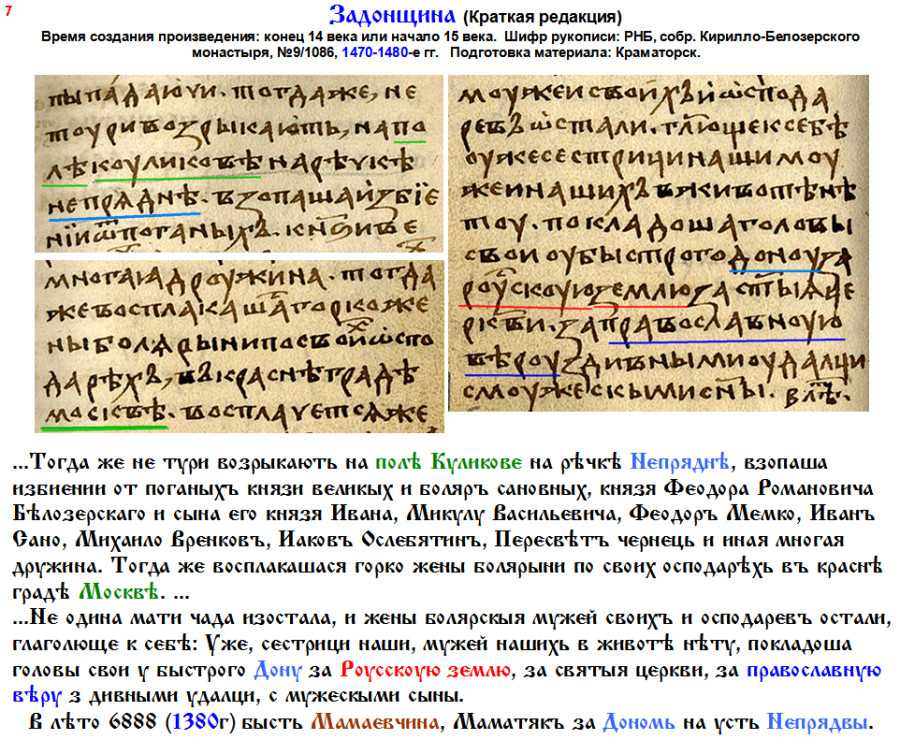 7
Задонщина (Краткая редакция)
Время создания произведения: конец 14 века или начало 15 века. Шифр рукописи: РНБ, собр. Кирилло-Белозерского
монастыря, №9/1086, 1470-1480-е гг. Подготовка материала: Краматорск.
пыпадаючи. тогдаже, не
тоуривозрыкають, напо
лѣкоуликовѣнарѣчкѣ
непряднѣ.
многаꙗдроужина. тогда
дарѣхъ, въкраснѣградѣ
москвѣ. восплачетсѧже
моужеисвоихъ
оужесестрицинашимоу
жеинашихъвживотѣнѣ
тоу. покладошаголовы
своиоубыстрогодоноуза
роускоуюземлюза
рькви. заправославноую
вѣроу здивнымиоудалци
смоужескымисны. влѣ.
...Тогда же не тури возрыкають на полѣ Куликове на рѣчкѣ Непряднѣ, взопаша
избиении от поганыхъ князи великых и боляръ сановных, князя Феодора Романовича
Бѣлозерскаго и сына его князя Ивана, Микулу Васильевича, Феодоръ Мемко, Иванъ
Сано, Михаило Вренковъ, Иаковъ Ослебятинъ, Пересвѣтъ чернець и иная многая
дружина. Тогда же восплакашася горко жены болярыни по своих осподарѣхь въ краснѣ
градѣ Москвѣ. ...
...Не одина мати чада изостала, и жены болярскыя мужей своихъ и осподаревъ остали,
глаголюще к себѣ: Уже, сестрици наши, мужей нашихь в животѣ нѣту, покладоша
головы свои у быстрого Дону за Роусскоую землю, за святыя церкви, за православную
вѣру з дивными удалци, с мужескыми сыны.
В лѣто 6888 (1380г) бысть Мамаевчина, Маматякъ за Дономь на усть Непрядвы.